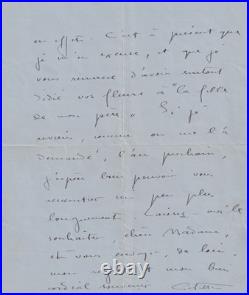 en effet. C'est à présent que
je m'en excuse, et que je
vous remercie d'avoir surtout
dédié vos fleurs à "la fille
de mon père". Si je
reviens, comme on me l'a
demandé, l'an prochain,
j'espère bien pouvoir vous
rencontrer un peu plus
longuement. Laissez-moi le
souhaiter chère Madame,
et vous envoyer, de loin,
mon et mon bien
cordial souvenir Colette
© ccdbb